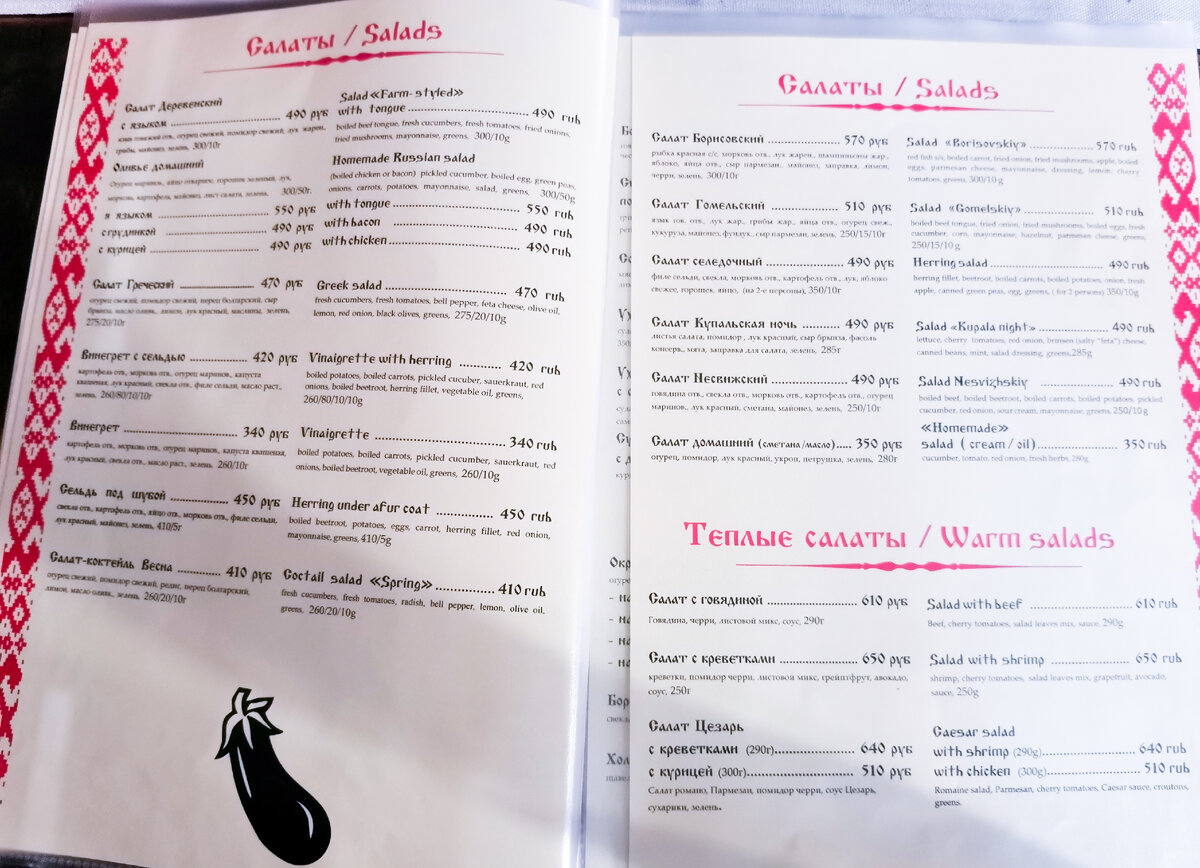 Салаты / Salads
Салат Деревенский
с языком 490 руб
язык говяжий отв., огурец свежий, помидор свежий, лук жарен,
грибы, майонез, зелень, 300/10г
Оливье домашний
Огурец маринов., яйцо отварное, горошек зеленый, лук,
морковь, картофель, майонез, лист салата, зелень, 300/50г.
я языком 550 руб
с грудинкой 490 руб
с курицей 490 руб
Салат Греческий 470 руб
огурец свежий, помидор свежий, перец болгарский, сыр
брынза, масло оливк., лимон, лук красный, маслины, зелень,
275/20/10г
Винегрет с сельдью 420 руб
картофель отв., морковь отв., огурец маринов., капуста
квашеная, лук красный, свекла отв., филе сельди, масло раст.,
зелень, 260/80/10/10г
Винегрет 340 руб
картофель отв., морковь отв., огурец маринов., капуста квашеная,
лук красный, свекла отв., масло раст., зелень 260/10г
Сельдь под шубой 450 руб
свекла отв., картофель отв., яйцо отв., морковь отв., филе сельди,
лук красный, майонез, зелень, 410/5г
Салат-коктейль Весна 410 руб
огурец свежий, помидор свежий, редис, перец болгарский,
лимон, масло оливк., зелень, 260/20/10г
Salad «Farm-styled»
with tongue 490 rub
boiled beef tongue, fresh cucumbers, fresh tomatoes, fried onions,
fried mushrooms, mayonnaise, greens. 300/10g
Homemade Russian salad
(boiled chicken or bacon) pickled cucumber, boiled egg, green peas,
onions, carrots, potatoes, mayonnaise, salad, greens, 300/50g
with tongue 550 rub
with bacon 490 rub
with chicken 490 rub
Greek salad 470 rub
fresh cucumbers, fresh tomatoes, bell pepper, feta cheese, olive oil,
lemon, red onion, black olives, greens, 275/20/10g
Vinaigrette with herring 420 rub
boiled potatoes, boiled carrots, pickled cucuber, sauerkraut, red
onions, boiled beetroot, herring fillet, vegetable oil, greens,
260/80/10/10g
Vinaigrette 340 rub
boiled potatoes, boiled carrots, pickled cucumber, sauerkraut, red
onions, boiled beetroot, vegetable oil, greens, 260/10g
Herring under afur coat 450 rub
boiled beetroot, potatoes, eggs, carrot, herring fillet, red onion,
mayonnaise, greens, 410/5g
Coctail salad «Spring» 410 rub
fresh cucumbers, fresh tomatoes, radish, bell pepper, lemon, olive oil,
greens, 260/20/10g
Салаты / Salads
Салат Борисовский 570 руб
рыбка красная с/с, морковь отв., лук жарен., шампиньоны жар.,
яблоко, яйца отв., сыр пармезан., майонез, заправка, лимон,
черри, зелень. 300/10г
Салат Гомельский 510 руб
язык гов. отв., лук жар., грибы жар., яйца отв., огурец свеж.,
кукуруза, майонез, фундук, сыр пармезан, зелень, 250/15/10г
Салат селедочный 490 руб
филе сельди, свекла, морковь отв., картофель отв., лук, яблоко
свежее, горошек, яйцо, (на 2-е персоны), 350/10г
Салат Купальская ночь 490 руб
листья салата, помидор, лук красный, сыр брынза, фасоль
консерв., мята, заправка для салата, зелень, 285г
Салат Несвижский 490 руб
говядина отв., свекла отв., морковь отв., картофель отв., огурец
маринов., лук красный, сметана, майонез, зелень, 250/10г
Салат домашний (сметана/масло) 350 руб
огурец, помидор, лук красный, укроп, петрушка, зелень, 280г
Salad «Borisovskiy» 570 rub
red fish s/s, boiled carrot, fried onion, fried mushrooms, apple, boiled
eggs, parmesan cheese, mayonnaise, dressing, lemon, cherry
tomatoes, greens, 300/10 g
Salad «Gomelskiy» 510 rub
boiled beef tongue, fried onion, fried mushrooms, boiled eggs, fresh
cucumber, corn, mayonnaise, hazelnut, parmesan cheese, greens,
250/15/10 g
Herring salad 490 rub
herring fillet, beetroot, boiled carrots, boiled potatoes, onion, fresh
apple, canned green peas, egg, greens, ( for 2 persons) 350/10g
Salad «Kupala night» 490 rub
lettuce, cherry tomatoes, red onion, brunsen (salty "feta") cheese,
canned beans, mint, salad dressing, greens,285g
Salad Nesvizhskiy 490 rub
boiled beef, boiled beetroot, boiled carrots, boiled potatoes, pickled
cucumber, red onion, sour cream, mayonnaise, greens, 250/10 g
«Homemade»
salad ( cream / oil) 350 rub
cucumber, tomato, red onion, fresh herbs, 280g
Теплые салаты / Warm salads
Салат с говядиной 610 руб
Говядина, черри, листовой микс, соус, 290г
Салат с креветками 650 руб
креветки, помидор черри, листовой микс, грейпфрут, авокадо,
соус, 250г
Салат Цезарь
с креветками (290г) 640 руб
с курицей (300г) 510 руб
Салат романо, Пармезан, помидор черри, соус Цезарь,
сухарики, зелень.
Salad with beef 610 rub
Beef, cherry tomatoes, salad leaves mix, sauce, 290g
Salad with shrimp 650 rub
shrimp, cherry tomatoes, salad leaves mix, grapefruit, avocado,
sauce, 250g
Caesar salad
with shrimp (290g) 640 rub
with chicken (300g) 510 rub
Romaine salad, Parmesan, cherry tomatoes, Caesar sauce, croutons,
greens.